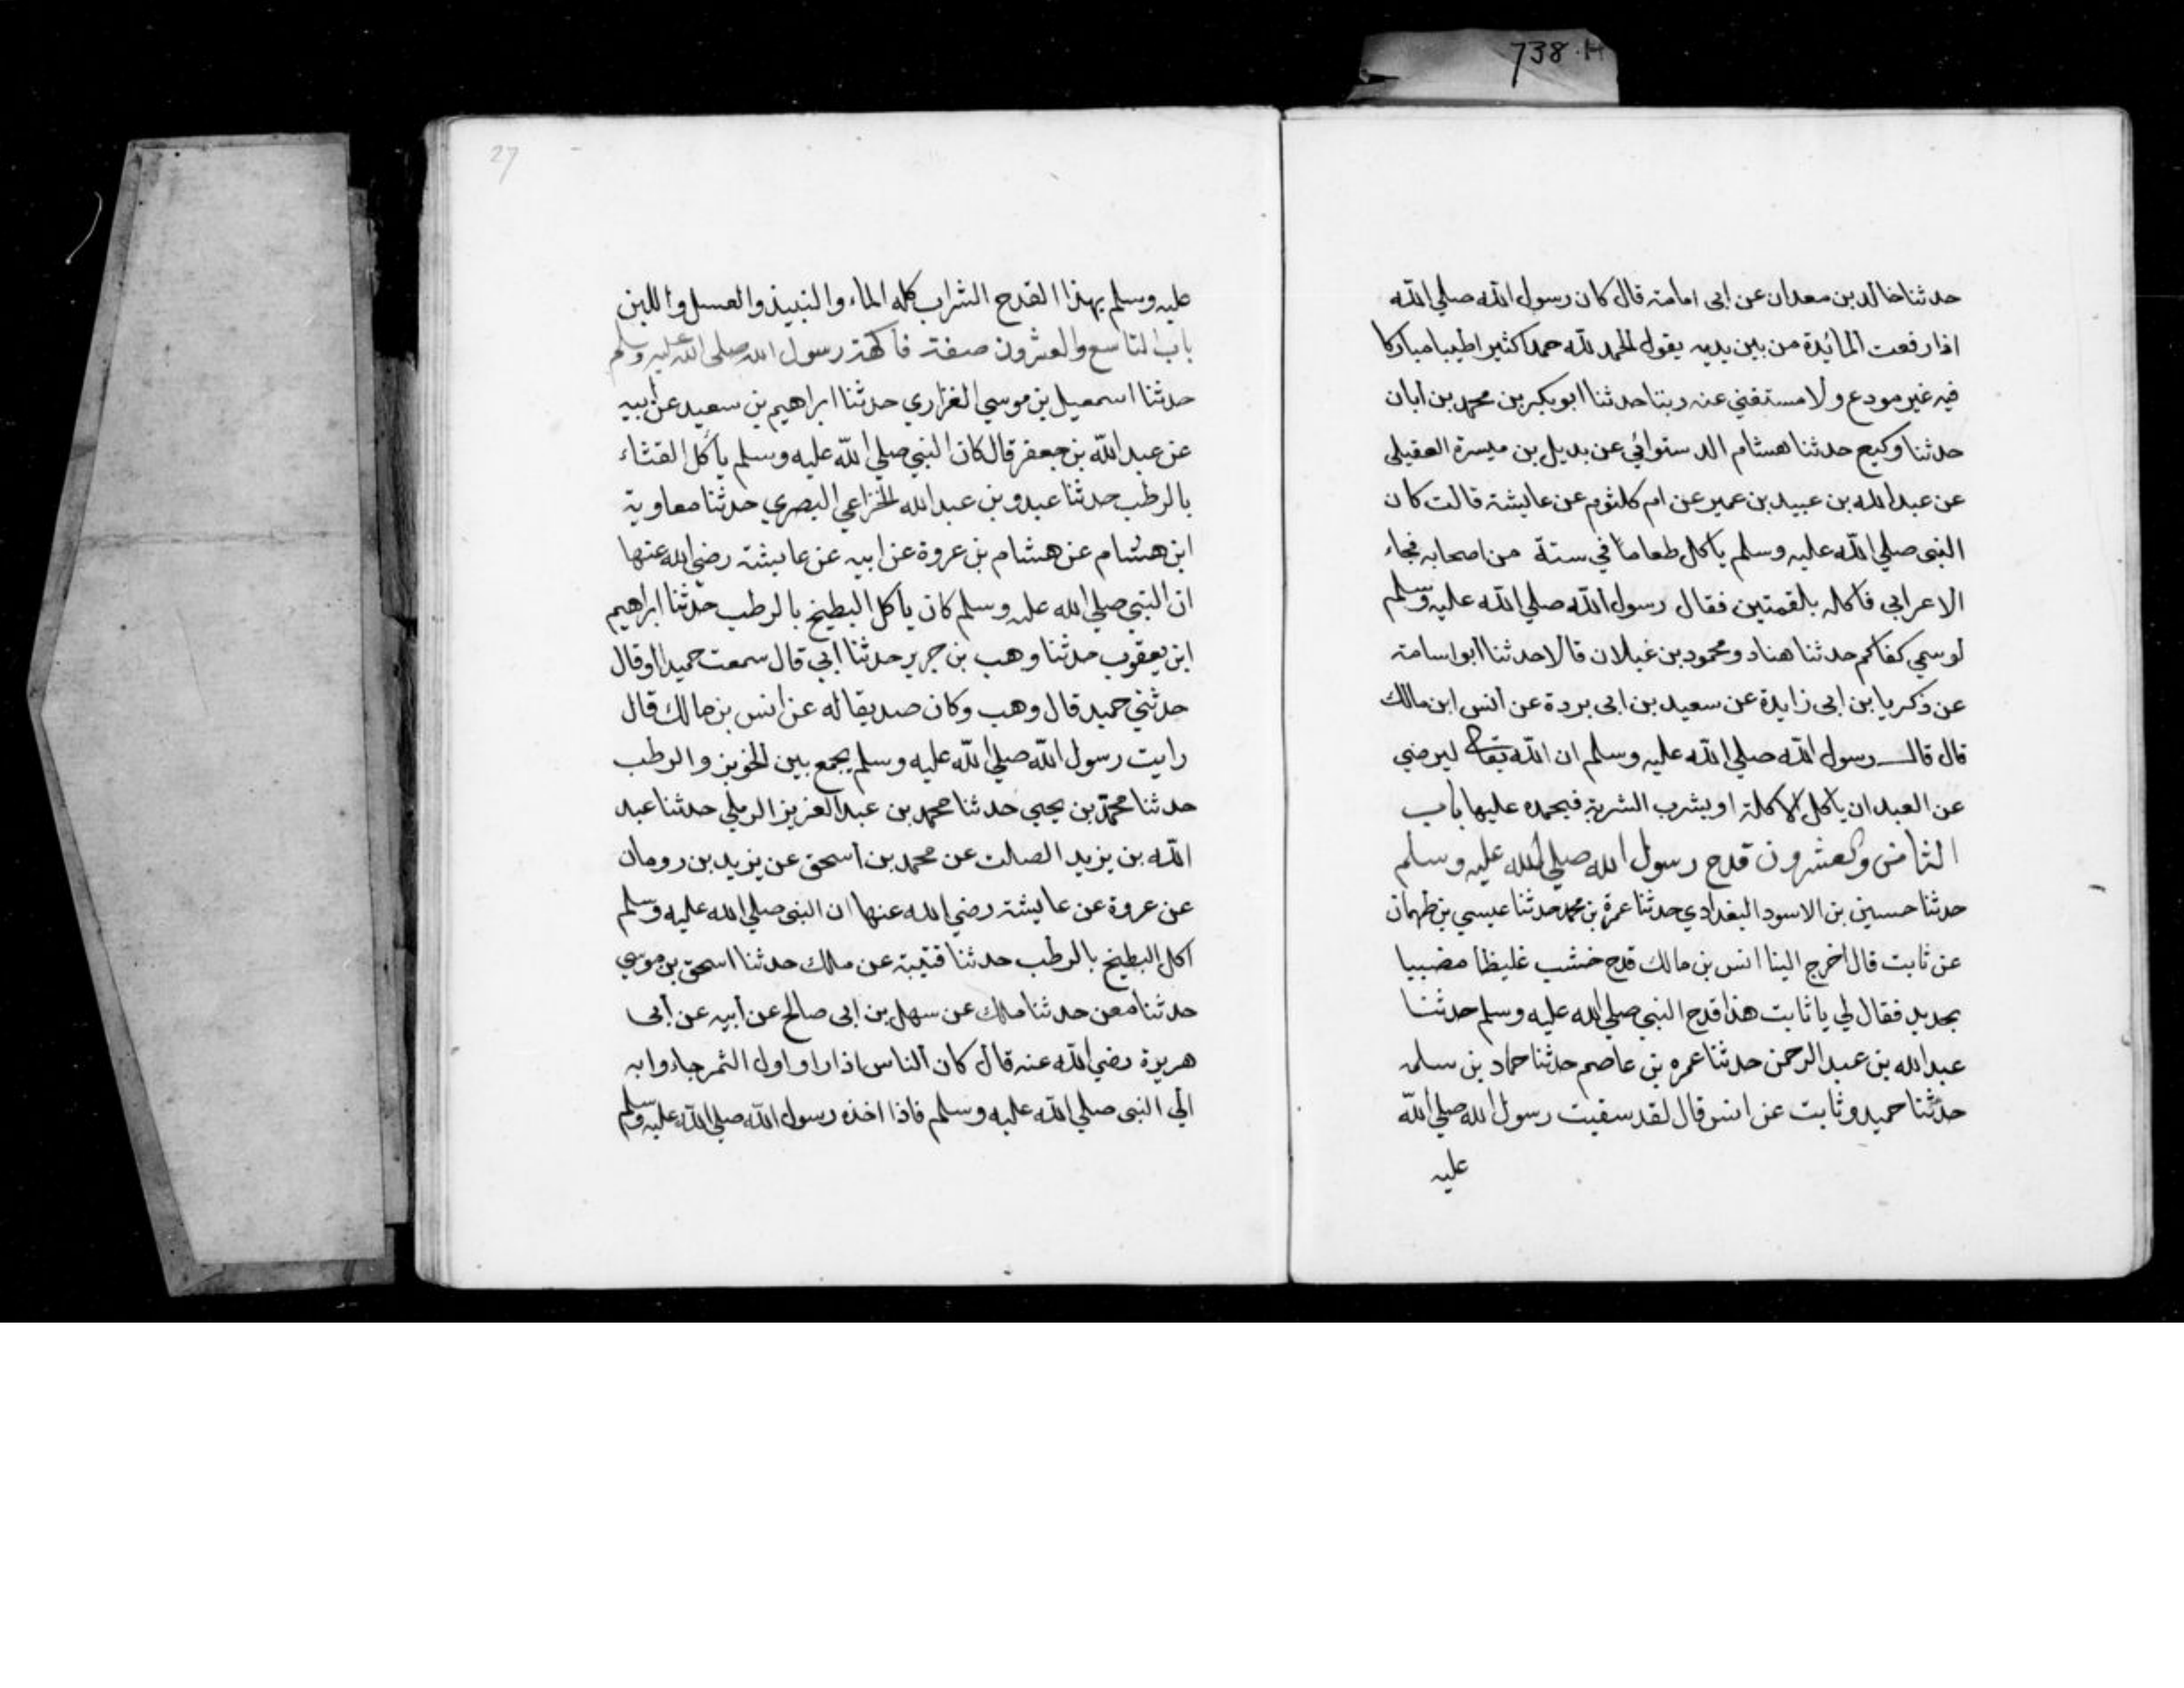 738.H
حدثنا خالد بن معدان عن ابى امامة قال كان رسول الله صلي الله
اذا رفعت المائدة من بين يديه يقول الحمد لله حمدا كثيرا طيبا مباركا
فيه غير مودع ولا مستغني عنه ربنا حدثنا ابو بكر بن محمد بن ابان
حدثنا وكيع حدثنا هشام الدستوائي عن بديل بن ميسرة العقيلى
عن عبد الله بن عبيد بن عمير عن ام كلثوم عن عايشة قالت كان
النبى صلي الله عليه وسلم ياكل طعاما في ستة من اصحابه فجاء
الاعرابي فاكله بلقمتين فقال رسول الله صلي الله عليه وسلم
لو سمي كفاكم حدثنا هناد ومحمود بن غيلان قالا حدثنا ابو اسامة
عن ذكريا بن ابى زايدة عن سعيد بن ابى بردة عن انس ابن مالك
قال قال رسول الله صلي الله عليه وسلم ان الله تعالى ليرضي
عن العبد ان ياكل الاكلة او يشرب الشربة فيحمده عليها باب
الثامن والعشرون قدح رسول الله صلي الله عليه وسلم
حدثنا حسين بن الاسود البغدادي حدثنا عمرة بن محمد حدثنا عيسي بن طهمان
عن ثابت قال اخرج الينا انس بن مالك قدح خشب غليظا مضببا
بحديد فقال لي يا ثابت هذا قدح النبي صلي الله عليه وسلم حدثنا
عبد الله بن عبد الرحمن حدثنا عمره بن عاصم حدثنا حماد بن سلمه
حدثنا حميد وثابت عن انس قال لقد سقيت رسول الله صلي الله
عليه
27
عليه وسلم بهذا القدح الشراب كله الماء والنبيذ والعسل واللبن
باب التاسع والعشرون صفة فاكهة رسول الله صلى الله عليه وسلم
حدثنا اسمعيل بن موسي الفزاري حدثنا ابراهيم بن سعيد عن ابيه
عن عبد الله بن جعفر قال كان النبي صلي الله عليه وسلم ياكل القثاء
بالرطب حدثنا عبدو بن عبد الله الخزاعي البصري حدثنا معاوية
ابن هشام عن هشام بن عروة عن ابيه عن عايشة رضي الله عنها
ان النبي صلي الله عليه وسلم كان ياكل البطيخ بالرطب حدثنا ابراهيم
ابن يعقوب حدثنا وهب بن جرير حدثنا ابي قال سمعت حميدا او قال
حدثني حميد قال وهب وكان صديقا له عن انس بن مالك قال
رايت رسول الله صلي الله عليه وسلم يجمع بين الخوبز والرطب
حدثنا محمد بن يحيي حدثنا محمد بن عبد العزيز الرملي حدثنا عبد
الله بن يزيد الصلت عن محمد بن اسحق عن يزيد بن رومان
عن عروة عن عايشة رضي الله عنها ان النبي صلي الله عليه وسلم
اكل البطيخ بالرطب حدثنا قتيبة عن مالك حدثنا اسحق بن موسي
حدثنا معن حدثنا مالك عن سهل بن ابى صالح عن ابيه عن ابى
هريرة رضي الله عنه قال كان الناس اذا راو اول الثمر جاءوا به
الي النبى صلي الله عليه وسلم فاذا اخذه رسول الله صلي الله عليه وسلم